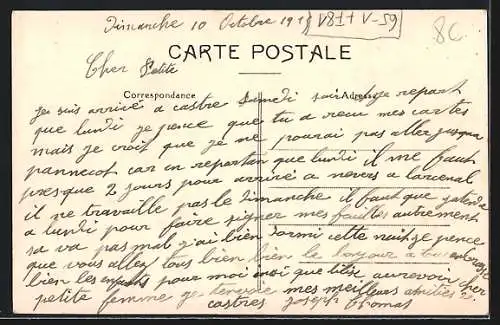 Dimanche 10 Octobre 191
V81+V-59
8C
CARTE POSTALE
Cher Petite
Correspondance
Adresse
je suis arrivé a castre Samdi soir et je repart
que lundi je pence que tu a recu mes cartes
mais je croit que je ne pourai pas aller jusqua
pannecot car en repartan que lundi il me faut
presque 2 jours pour arrivé a nevers a larcenal
il ne travaille pas le Dimanche il faut que
a lundi pour faire signer mes autrement
sa va pas mal j'ai bien Dormi cette nuit je pence
que vous allez tous bien bien le bonjour a
bien les enfants pour moi que aurevoir cher
petite femme je mes meilleurs amitiés
castres Joseph Thomas